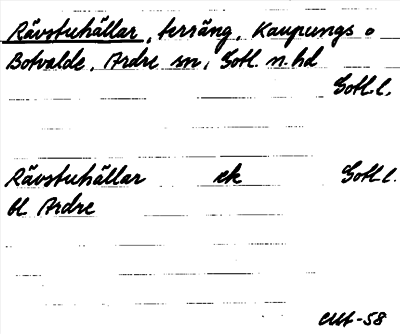 Rävstuhällar, terräng, Kaupungs o
Botvalde, Ardre sn, Gotl. n. hd
Gotl. l.
Rävstuhällar ek Gotl. l.
bl. Ardre